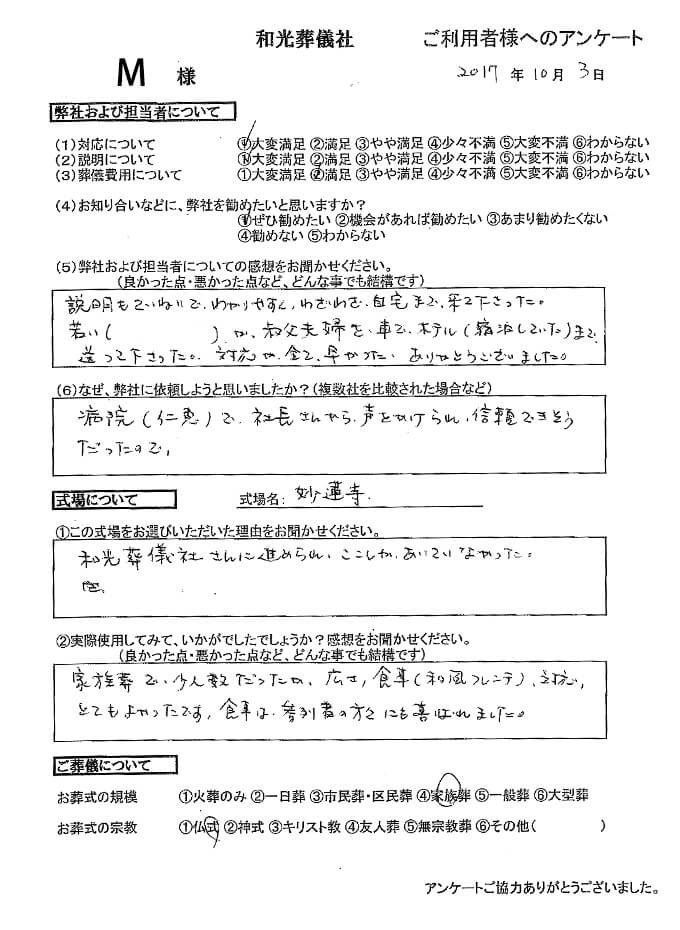 和光葬儀社 ご利用者様へのアンケート
M 様 2017 年 10 月 3 日
弊社および担当者について
(1)対応について ①大変満足 ②満足 ③やや満足 ④少々不満 ⑤大変不満 ⑥わからない
(2)説明について ①大変満足 ②満足 ③やや満足 ④少々不満 ⑤大変不満 ⑥わからない
(3)葬儀費用について ①大変満足 ②満足 ③やや満足 ④少々不満 ⑤大変不満 ⑥わからない
(4)お知り合いなどに、弊社を勧めたいと思いますか?
①ぜひ勧めたい ②機会があれば勧めたい ③あまり勧めたくない
④勧めない ⑤わからない
(5)弊社および担当者についての感想をお聞かせください。
(良かった点・悪かった点など、どんな事でも結構です)
説明もていねいで、わかりやすく、わざわざ、自宅まで、来て下さった。
若い( )が、叔父夫婦を、車で、ホテル(宿泊していた)まで
送って下さった。対応が、全て、早かった。ありがとうございました。
(6)なぜ、弊社に依頼しようと思いましたか?(複数社を比較された場合など)
病院(仁恵)で、社長さんから、声をかけられ、信頼できそう
だったので、
式場について 式場名: 妙蓮寺.
①この式場をお選びいただいた理由をお聞かせください。
和光葬儀社さんに進められ、ここしか、あいていなかった。
②実際使用してみて、いかがでしたでしょうか?感想をお聞かせください。
(良かった点・悪かった点など、どんな事でも結構です)
家族葬で、少人数だったが、広さ、食事(和風フレンチ)、対応、
とてもよかったです。食事は、参列者の方々にも喜ばれました。
ご葬儀について
お葬式の規模 ①火葬のみ ②一日葬 ③市民葬・区民葬 ④家族葬 ⑤一般葬 ⑥大型葬
お葬式の宗教 ①仏式 ②神式 ③キリスト教 ④友人葬 ⑤無宗教葬 ⑥その他( )
アンケートご協力ありがとうございました。